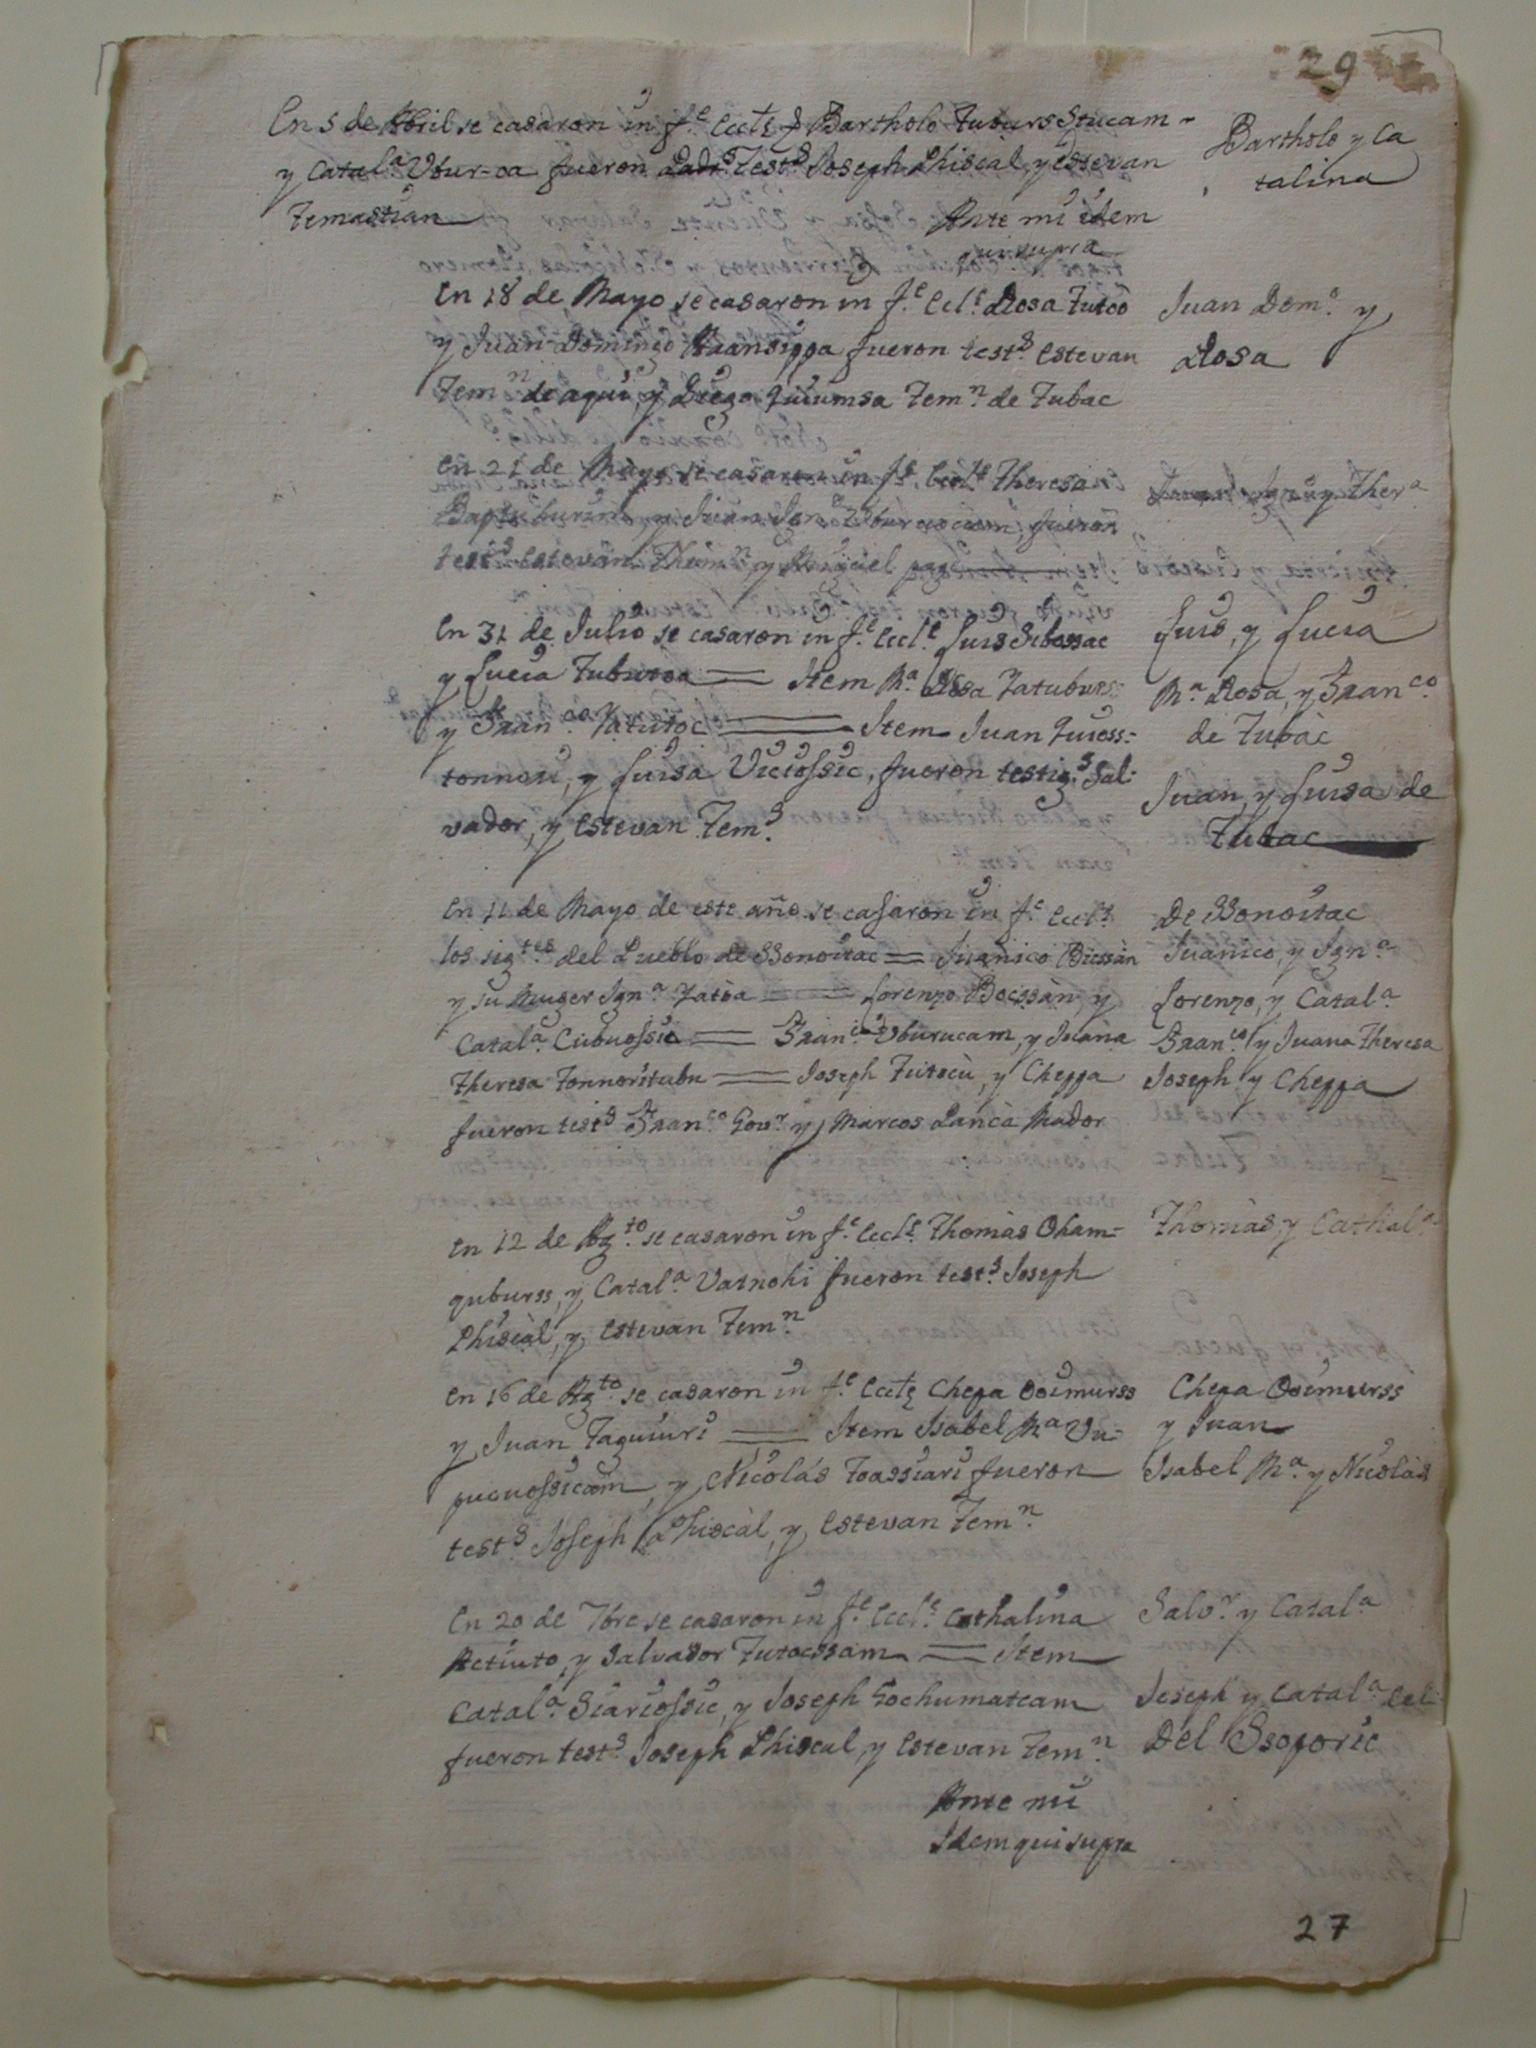 29
En 5 de Abril se casaron in f.e Eccle Bartholo Tuburs Stucam
y Catal.a Vbur-oa fueron Test.s Joseph Phiscal, y Estevan
Temastian
Ante mi idem
qui supra
Bartholo y Ca
talina
En 18 de Mayo se casaron in f.e Ecl.e Rosa Tutoo
y Juan Domingo Aransippa fueron test.s Estevan
Tem.n de aqui, y Diego Quiumsa Tem.n de Tubac
Juan Dom.o y
Rosa
En 21 de Mayo se casaron in f.e Eccle Theresa
y Juan Ign.o fueron
test.s Estevan Tem.n y Miguel
y Ther.a
En 31 de Julio se casaron in f.e Eccl.e Luis Sibossac
y Lucia Tubutoa = Item M.a Rosa Tatuburs
y Fran.co Tatutoc = Item Juan Quioss-
tonnori, y Luisa Viciossic, fueron testig.s Sal-
vador, y Estevan Tem.s
Luis, y Lucia
M.a Rosa, y Fran.co
de Tubàc
Juan, y Luisa de
Tubac
En 11 de Mayo de este año se casaron in f.e Eccl.e
los sig.tes del Pueblo de SSonoitac = Juanico Biessàn
y su Muger Ign.a Tatòa = Lorenzo Bocssàn, y
Catal.a Cubuossic = Fran.co Vburucam, y Juana
Theresa Tonnoritubu = Joseph Tutocù, y Cheppa
fueron test.s Fran.co Gov.r y Marcos Lancà Mador
De SSonoitac
Juanico, y Ign.a
Lorenzo, y Catal.a
Fran.co y Juana Theresa
Joseph y Cheppa
En 12 de Ag.to se casaron in f.e Eccl.e Thomàs Oham-
quburss, y Catal.a Vatnohi fueron test.s Joseph
Phiscàl, y Estevan Tem.n
Thomàs, y Cathal.a
En 16 de Ag.to se casaron in f.e Eccle Chepa Ooimurss
y Juan Taquiuri = Item Isabel M.a Vu-
pucuossicam, y Nicolàs Toassiari fueron
test.s Joseph Phiscàl, y Estevan Tem.n
Chepa Ooimurss
y Juan
Isabel M.a y Nicolàs
En 20 de 7bre se casaron in f.e Eccl.e Cathalina
Actiuto, y Salvador Tutocssam = Item
Catal.a Siariossic, y Joseph Gochumateam
fueron test.s Joseph Phiscal, y Estevan Tem.n
Ante mi
Idem qui supra
Salv.r y Catal.a
Joseph y Catal.a del
Del Ssoporic
27